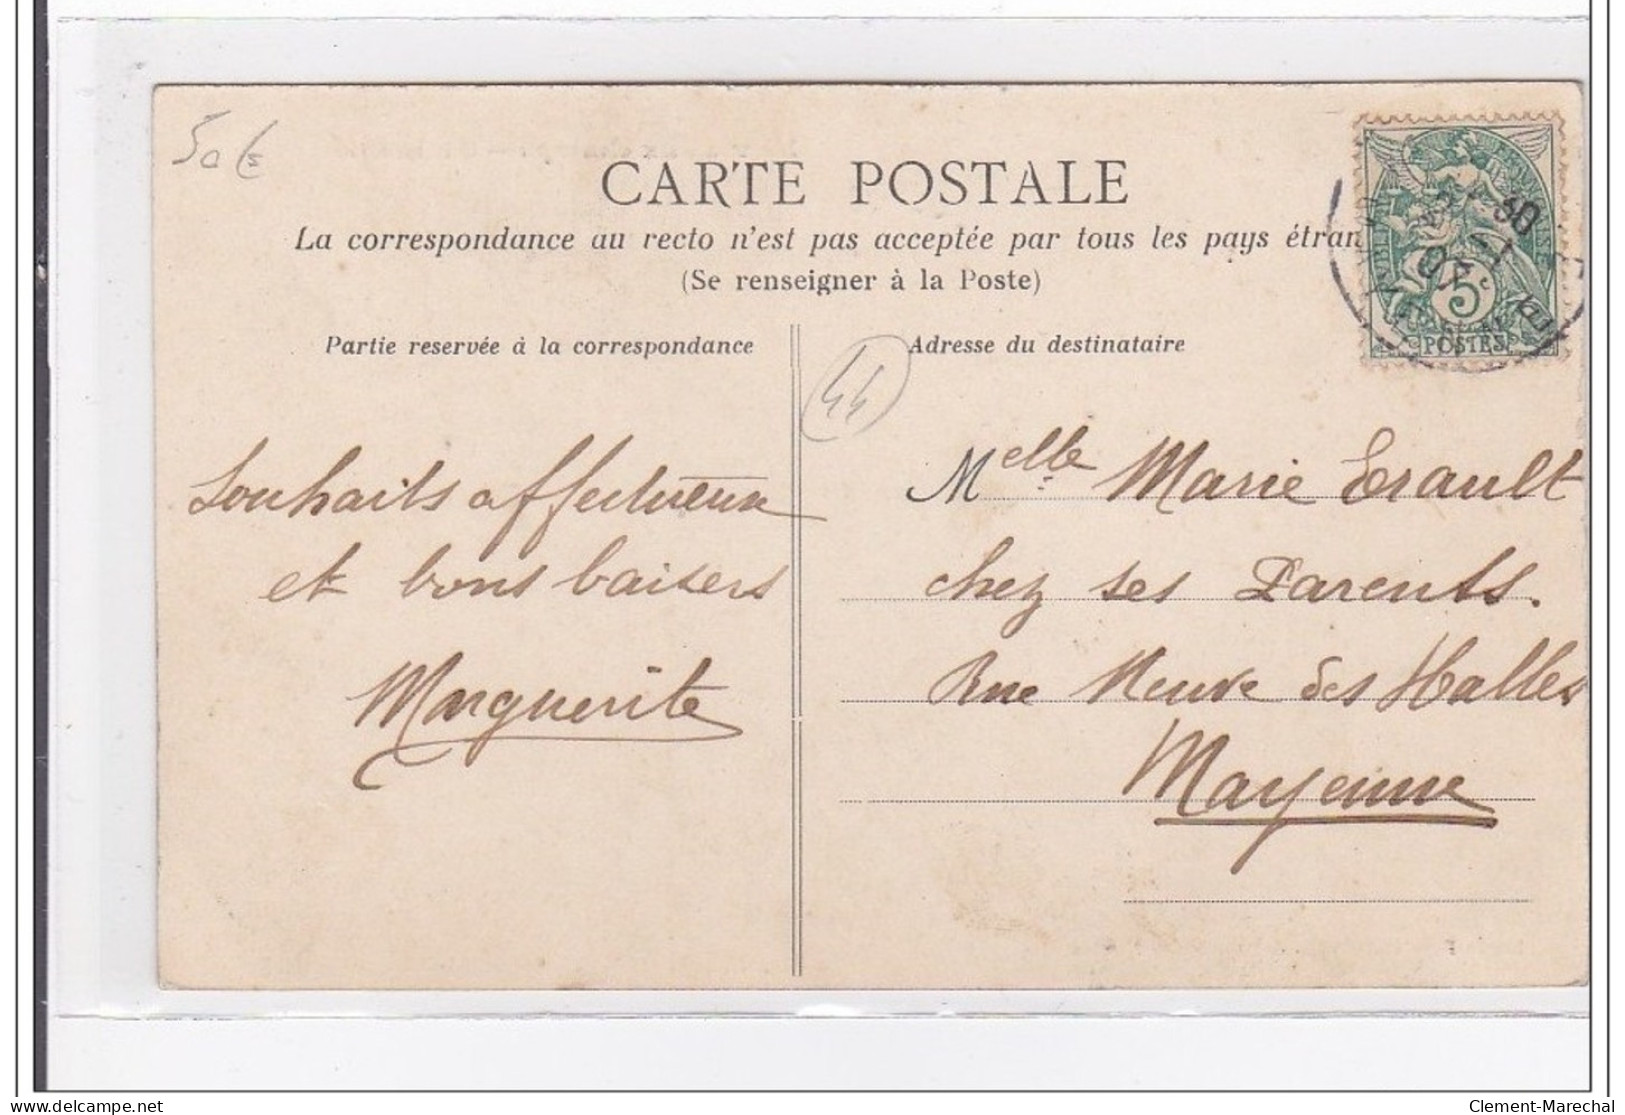 50
CARTE POSTALE
La correspondance au recto n'est pas acceptée par tous les pays étran
(Se renseigner à la Poste)
Partie reservée à la correspondance
Adresse du destinataire
44
Souhaits affectueux
et bons baisers
Marguerite
Melle Marie Erault
chez ses Parents.
Rue Neuve des Halles
Mayenne
5c
POSTES
Clement-Marechal